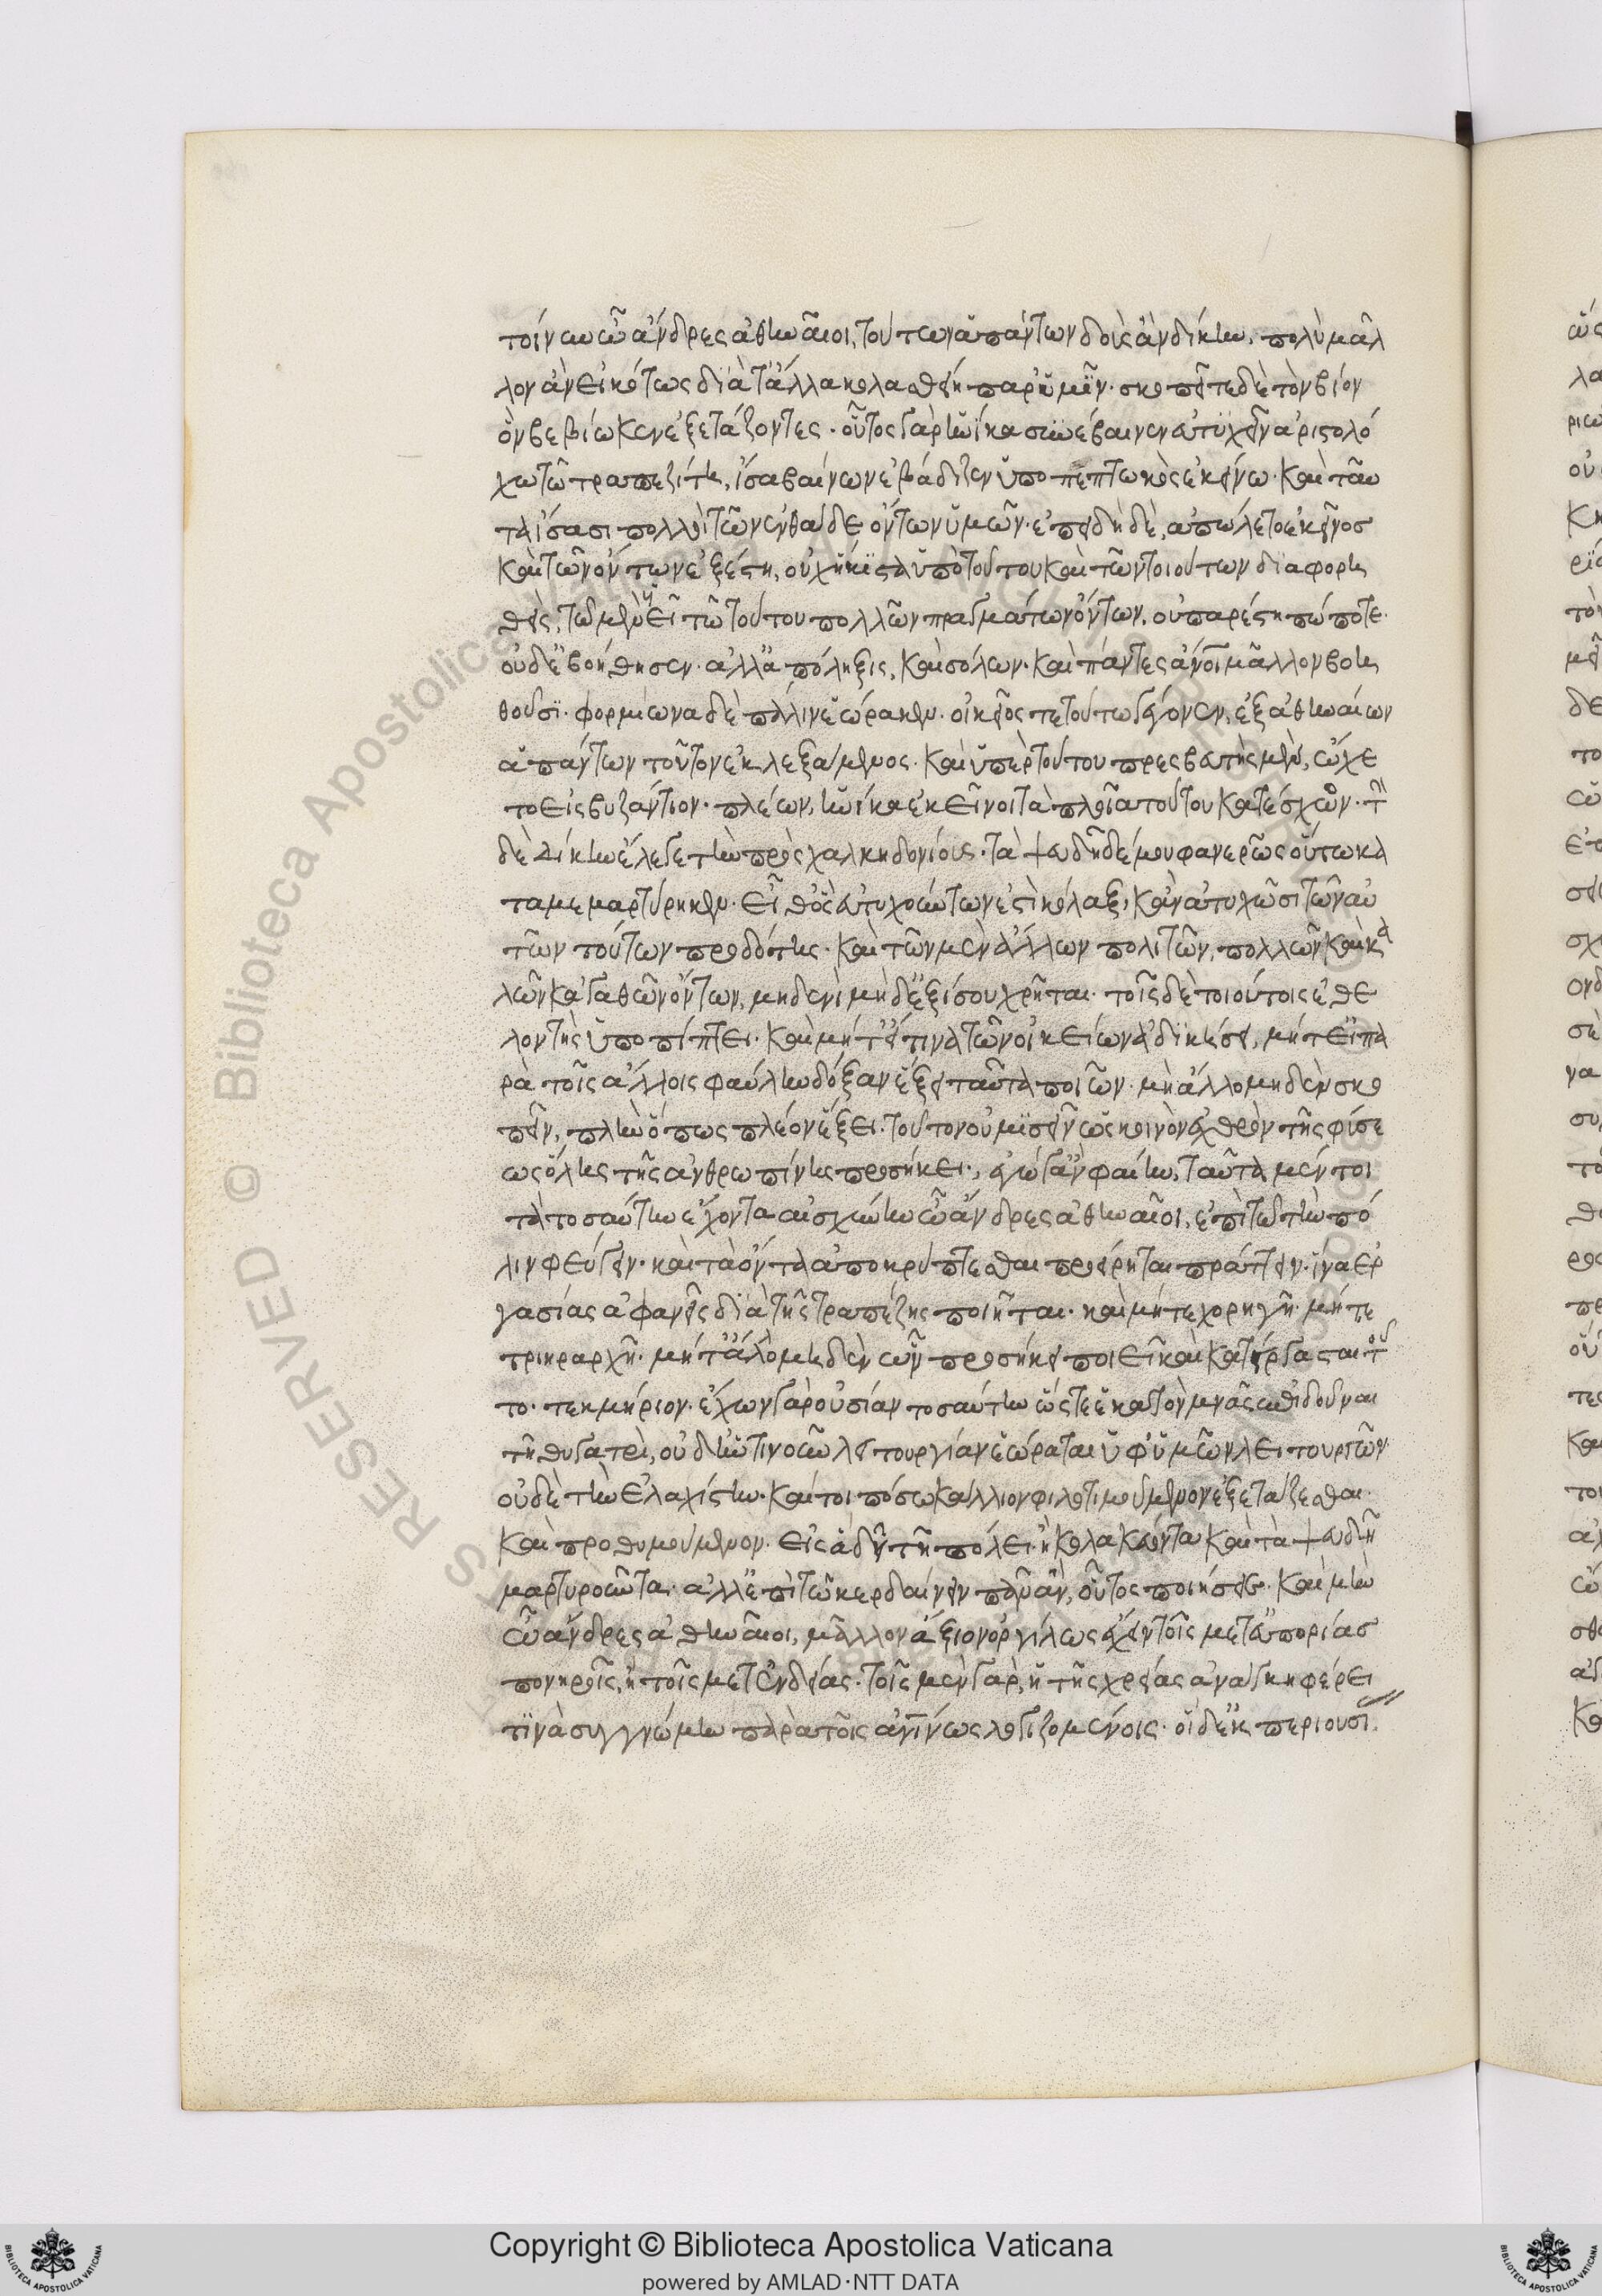 τοίνυν ὦ ἄνδρες ἀθηναῖοι, τούτων ἁπάντων δοὺς ἂν δίκην, πολὺ μᾶλ
λον ἂν εἰκότως διὰ τἄλλα κολασθείη παρ' ὑμῖν. σκοπεῖτε δὲ τὸν βίον
ὃν βεβίωκεν ἐξετάζοντες. οὗτος γὰρ ἡνίκα συνέβαινεν εὐτυχεῖν ἀριστολό
χω τῶ τραπεζίτη, ἴσα βαίνων ἐβάδιζεν ὑποπεπτωκὼς ἐκείνω. καὶ ταῦ
τα ἴσασι πολλοὶ τῶν ἐνθάδε ὄντων ὑμῶν. ἐπειδὴ δὲ, ἀπώλετο ἐκεῖνος
καὶ τῶν ὄντων ἐξέστη, οὐχ ἥκιστα ὑπὸ τούτου καὶ τῶν τοιούτων διαφορη
θεὶς, τῶ μὲν υἱεῖ τῶ τούτου πολλῶν πραγμάτων ὄντων, οὐ παρέστη πώποτε.
οὐδ' ἐβοήθησεν. ἀλλ' ἀπόληξις, καὶ σόλων. καὶ πάντες ἄνοι μᾶλλον βοη
θοῦσι. φορμίωνα δὲ πάλιν ἑώρακεν. οἰκεῖός τε τούτω γέγονεν, ἐξ ἀθηναίων
ἁπάντων τοῦτον ἐκλεξάμενος. καὶ ὑπὲρ τούτου πρεσβευτὴς μὲν, ὤχε
το εἰς βυζάντιον. πλέων, ἡνίκα ἐκεῖνοι τὰ πλοῖα τούτου κατέσχον. τὴν
δὲ δίκην ἔλεγε τὴν πρὸς χαλκηδονίους. τὰ ψευδῆ δέ μου φανερῶς οὕτω κα
ταμεμαρτύρηκεν. εἶθ' ὃς εὐτυχούντων ἐστὶ κόλαξ, κἂν ἀτυχῶσι τῶν αὐ
τῶν τούτων προδότης. καὶ τῶν μὲν ἄλλων πολιτῶν, πολλῶν καὶ κα
λῶν κἀγαθῶν ὄντων, μηδενὶ μηδ' ἐξίσου χρῆται. τοῖς δὲ τοιούτοις ἐθε
λοντὴς ὑποπίπτει. καὶ μήτ' εἴ τινα τῶν οἰκείων ἀδικήσει, μήτ' εἰ πα
ρὰ τοῖς ἄλλοις φαύλην δόξαν ἕξει ταῦτα ποιῶν. μὴ ἄλλο μηδὲν σκο
πεῖν, πλὴν ὅπως πλέον ἕξει. τοῦτον οὐ μισεῖν ὡς κοινὸν ἐχθρὸν τῆς φύσε
ως ὅλης τῆς ἀνθρωπίνης προσήκει., ἐγώ γ' ἂν φαίην, ταῦτα μέντοι
τὰ τοσαύτην ἔχοντα αἰσχύνην ὦ ἄνδρες ἀθηναῖοι, ἐπὶ τῶ τὴν πό
λιν φεύγειν. καὶ τὰ ὄντα ἀποκρύπτεσθαι προήρηται πράττειν. ἵνα ἐρ
γασίας ἀφανεῖς διὰ τῆς τραπέζης ποιῆται. καὶ μήτε χορηγῆ. μήτε
τριηραρχῆ. μήτ' ἄλλο μηδὲν ὧν προσήκει ποιεῖ καὶ κατείργασται τοῦ
το. τεκμήριον. ἔχων γὰρ οὐσίαν τοσαύτην ὥστε ἑκατὸν μνᾶς ἐπιδοῦναι
τῆ θυγατρὶ, οὐδ' ἡντινοῦν λειτουργίαν ἑώραται ὑφ' ὑμῶν λειτουργῶν.
οὐδὲ τὴν ἐλαχίστην. καίτοι πόσω κάλλιον φιλοτιμούμενον ἐξετάζεσθαι.
καὶ προθυμούμενον. εἰς ἃ δεῖ τῆ πόλει. ἢ κολακεύοντα καὶ τὰ ψευδῆ
μαρτυροῦντα. ἀλλ' ἐπὶ τῶ κερδαίνειν πᾶν ἂν, οὗτος ποιήσειε. καὶ μὴν
ὦ ἄνδρες ἀθηναῖοι, μᾶλλον ἄξιον ὀργίλως ἔχειν τοῖς μετ' εὐπορίας
πονηροῖς, ἢ τοῖς μετ' ἐνδείας. τοῖς μὲν γὰρ, ἡ τῆς χρείας ἀνάγκη φέρει
τινὰ συγγνώμην παρὰ τοῖς ἀνίνως λογιζομένοις. οἱ δ' ἐκ περιουσί